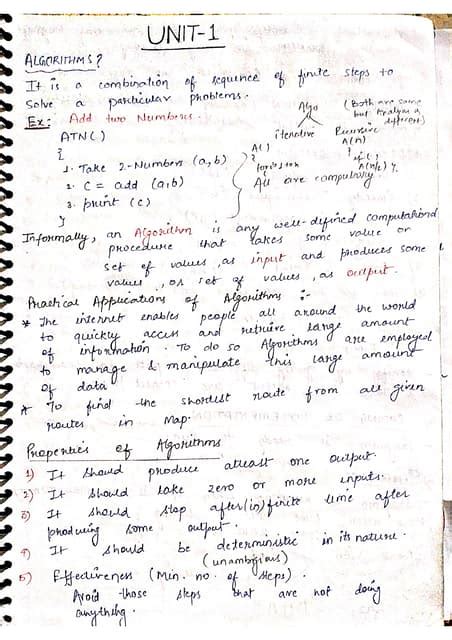 UNIT-1
ALGORITHMS?
It is a combination of sequence of finite steps to
solve a particular problems.
Ex: Add two Numbers.
ATN()
{
1. Take 2-Numbers (a,b)
2. C = add (a,b)
3. print (c)
}
Algo
(Both are same
but Analysis is
different)
iterative Recursive
A() A(n)
{ {
for i=1 to n A(n/2) }
All are compulsory.
Informally, an Algorithm is any well-defined computational
procedure that takes some value or
set of values, as input and produces some
values, or set of values, as output.
Practical Applications of Algorithms :-
* The internet enables people all around the world
to quickly access and retrive large amount
of information. To do so Algorithms are employed
to manage & manipulate this large amount
of data.
* To find the shortest route from all given
routes in Map.
Properties of Algorithms
1) It should produce atleast one output.
2) It should take zero or more inputs.
3) It should stop after (in)finite time after
producing some output.
4) It should be deterministic in its nature.
(unambigious)
5) Effectiveness (Min. no. of steps).
Avoid those steps that are not doing
anything.